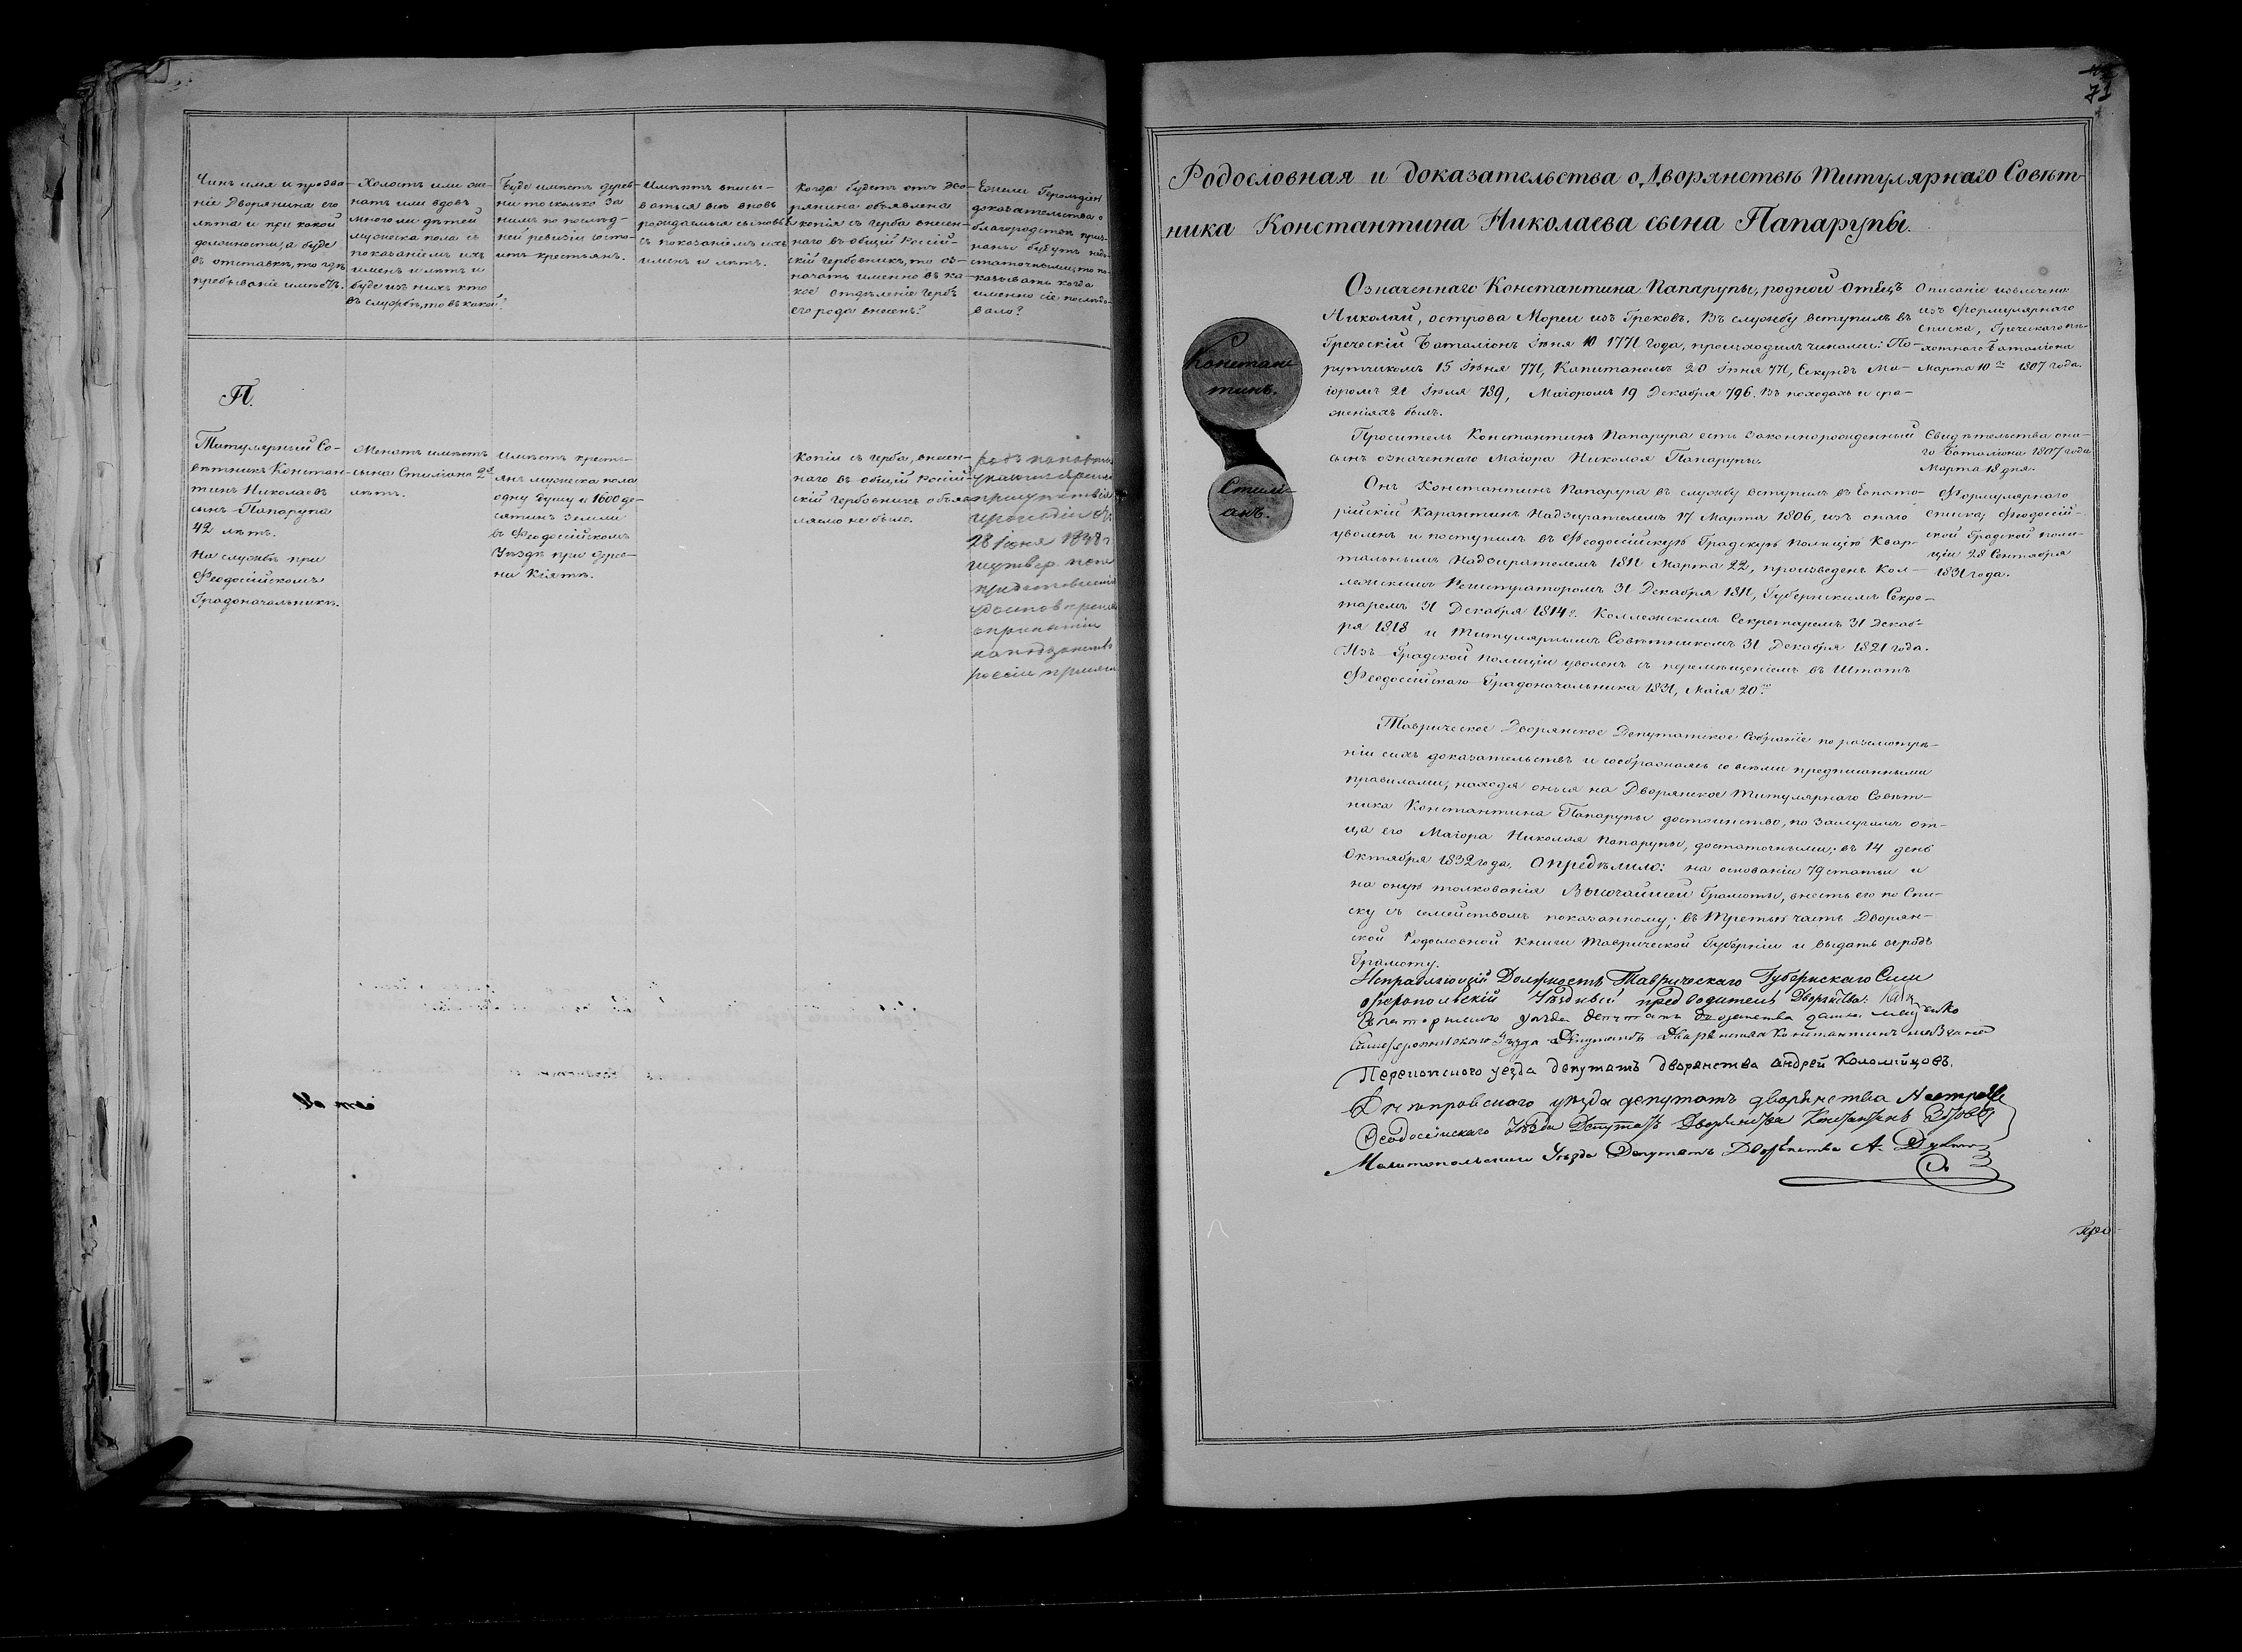 Чинъ имя и прозва-
ніе Дворянина его
лѣта и при какой
должности, а буде
въ отставкѣ, то гдѣ
пребываніе имѣетъ.
Холостъ или же-
натъ или вдовъ
много ли дѣтей
мужеска пола съ
показаніемъ ихъ
именъ и лѣтъ и
буде изъ нихъ кто
въ службѣ, то въ какой?
Буде имѣетъ дерев-
ни то сколько за
нимъ по послѣд-
ней ревизіи состо-
итъ крестьянъ.
Имѣютъ вписы-
ваться всѣ вновь
рождаемые сыновья
съ показаніемъ ихъ
именъ и лѣтъ.
Когда будетъ отъ дво-
рянина объявлена
копія съ герба внесен-
наго въ общій Россій-
скій гербовникъ, то оз-
начать именно въ ка-
кое отдѣленіе гербъ
его рода внесенъ?
Ежели Герольдіею
доказательства о
благородствѣ приз-
наны будутъ недо-
статочными, то по-
казывать когда
именно сіе послѣдо-
вало?
П.
Титулярный Со-
вѣтникъ Констан-
тинъ Николаевъ
сынъ Папарупа
42 лѣтъ.
На службѣ при
Феодосійскомъ
Градоначальникѣ.
Женатъ имѣетъ
сына Стиліана 2хъ
лѣтъ.
Имѣетъ кресть-
янъ мужеска пола
одну душу и 1600 де-
сятинъ земли
въ Феодосійскомъ
Уѣздѣ при дерев-
ни Кіятъ.
Копіи съ герба, внесен-
наго въ общій Россій-
скій гербовникъ объяв-
ляемо не было.
родъ
28 Іюня 1838 г.
71
Родословная и доказательства о Дворянствѣ Титулярнаго Совѣт-
ника Константина Николаева сына Папарупы.
Констан-
тинъ.
Стили-
анъ.
Означеннаго Константина Папарупы, родной отецъ
Николай, острова Мореи изъ Грековъ. Въ службу вступилъ въ
Греческій Баталіонъ Іюня 10 1771 года, происходилъ чинами: По-
рутчикомъ 15 Іюня 771, Капитаномъ 20 Іюня 771, Секундъ Ма-
іоромъ 21 Іюля 789, Маіоромъ 19 Декабря 796. Въ походахъ и сра-
женіяхъ былъ.
Описаніе извлечено
изъ Формулярнаго
списка, Греческаго пѣ-
хотнаго Баталіона
Марта 10го 1807 года.
Проситель Константинъ Папарупа есть законнорожденный
сынъ означеннаго Маіора Николая Папарупы.
Свидѣтельства она-
го Баталіона 1807 года
Марта 18 дня.
Онъ Константинъ Папарупа въ службу вступилъ въ Евпато-
рійскій Карантинъ Надзирателемъ 17 Марта 1806, изъ онаго
уволенъ и поступилъ въ Феодосійскую Градскую Полицію Квар-
тальнымъ Надзирателемъ 1811 Марта 22, произведенъ Кол-
лежскимъ Регистраторомъ 31 Декабря 1811, Губернскимъ Секре-
таремъ 31 Декабря 1814 г. Коллежскимъ Секретаремъ 31 Декаб-
ря 1818 и Титулярнымъ Совѣтникомъ 31 Декабря 1821 года.
Изъ Градской Полиціи уволенъ съ перемѣщеніемъ въ Штатъ
Феодосійскаго Градоначальника 1831, Маія 20го
Формулярнаго
списка, Феодосій-
ской Градской поли-
ціи 28 Сентября
1831 года.
Таврическое Дворянское Депутатское Собраніе по разсмотрѣ-
ніи сихъ доказательствъ и сообразясь со всѣми предписанными
правилами, находя оныя на Дворянское Титулярнаго Совѣт-
ника Константина Папарупы достоинство, по заслугамъ от-
ца его Маіора Николая Папарупы, достаточными; въ 14 день
Октября 1832 года, опредѣлило: на основаніи 79 статьи и
на оную толкованія Высочайшей Грамоты, внесть его по Спи-
ску съ семействомъ показанному; въ третью часть Дворян-
ской Родословной книги Таврической Губерніи и выдать на родъ
Грамоту.
Исправляющій Должность Таврическаго Губернскаго Сим
феропольскій Уѣздный предводитель Дворянства:
Евпаторійскаго уѣзда депутатъ дворянства
Симферопольскаго Уѣзда Депутатъ Дворянства Константинъ
Перекопского уезда депутатъ дворянства Андрей Коломійцовъ.
Днепровскаго уѣзда депутатъ дворянства
Феодосійскаго Уѣзда Депутатъ Дворянства Константинъ
Мелитопольскаго Уѣзда Депутатъ Дворянства А.